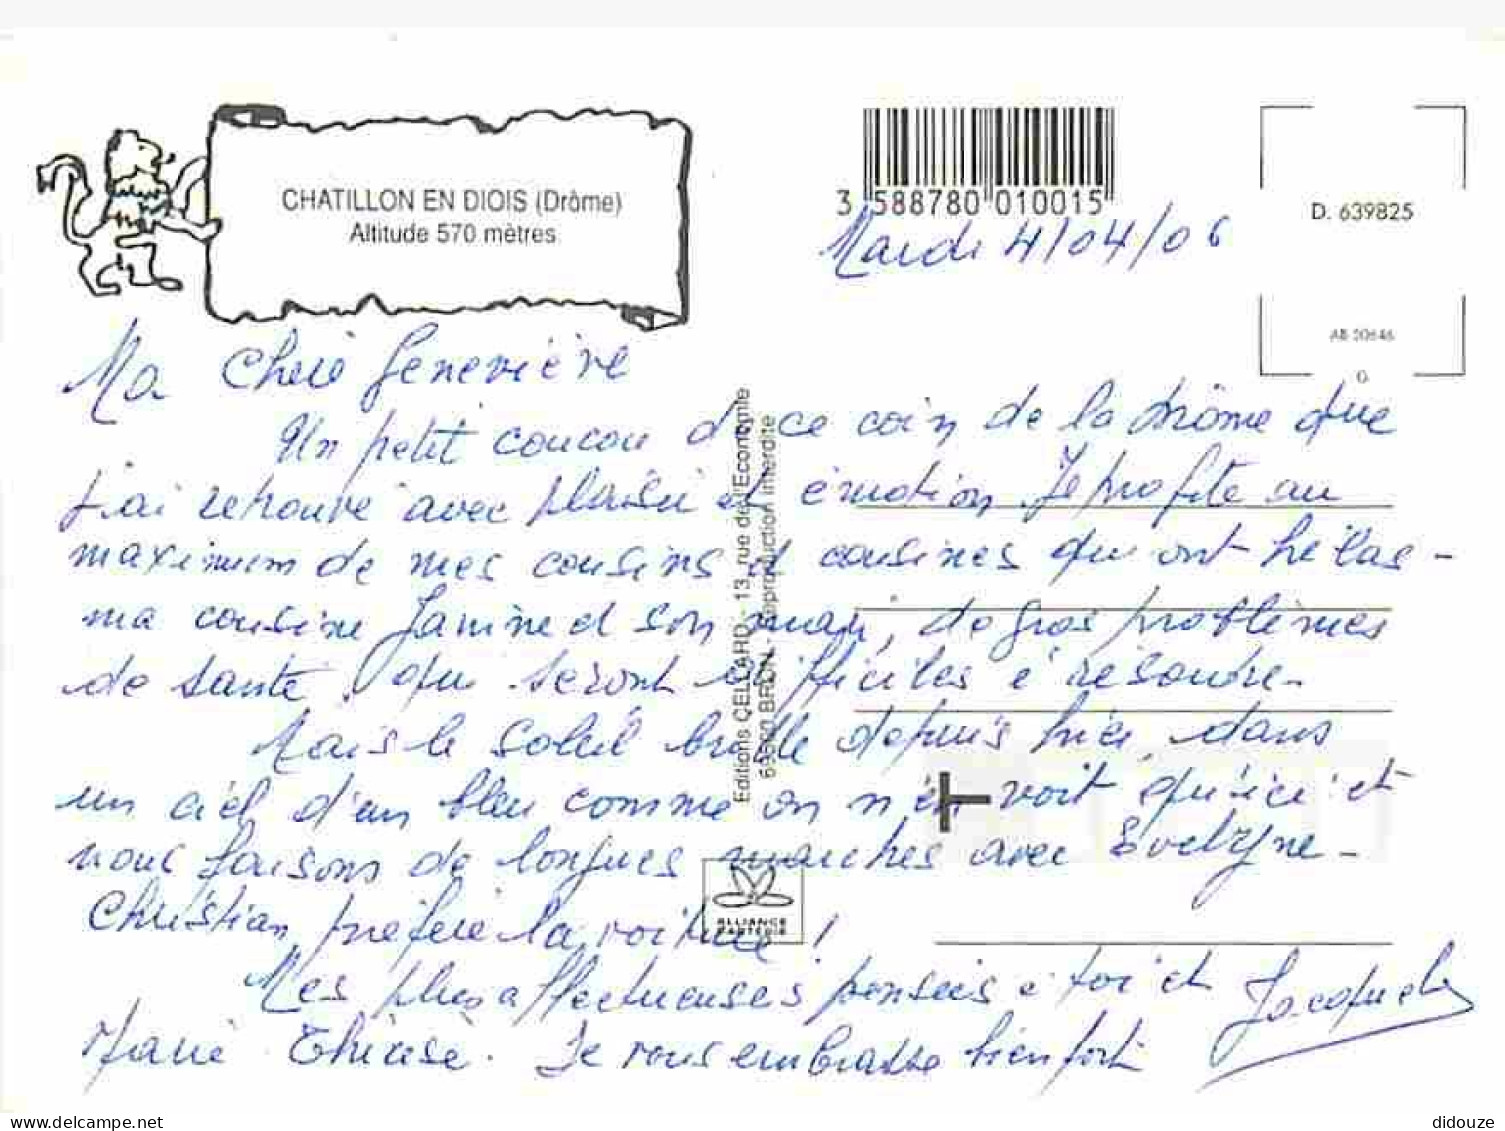 CHATILLON EN DIOIS (Drôme)
Altitude 570 mètres
3 588780 010015
D. 639825
Mardi 4/04/06
AB 20646
G
Ma Chère Geneviève
Un petit coucou de ce coin de la drôme que
j'ai retrouvé avec plaisir et émotion. Je profite au
maximum de mes cousins et cousines qui ont hélas -
ma cousine Janine et son mari, de gros problèmes
de santé. qui seront difficiles à résoudre.
Mais le soleil brille depuis hier, dans
un ciel d'un bleu comme on n'en voit qu'ici et
nous faisons de longues marches avec Evelyne -
Christian, préfère la voiture !
Mes plus affectueuses pensées à toi et
Marie Thérèse. Je vous embrasse bien fort
Editions CELLARD - 13, rue de l'Economie
69500 BRON - Reproduction interdite
ALLIANCE
www.delcampe.net
didouze